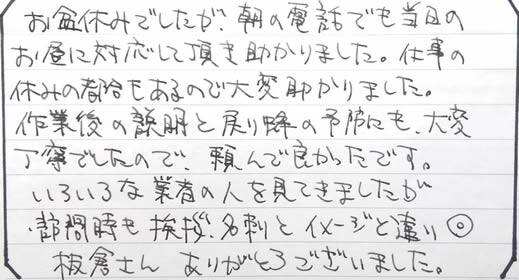 お盆休みでしたが、朝の電話でも当日の
お昼に対応して頂き助かりました。仕事の
休みの都合もあるので大変助かりました。
作業後の説明と戻り蜂の予防にも、大変
丁寧でしたので、頼んで良かったです。
いろいろな業者の人を見てきましたが
訪問時も挨拶、名刺とイメージと違い◎
板倉さん ありがとうございました。